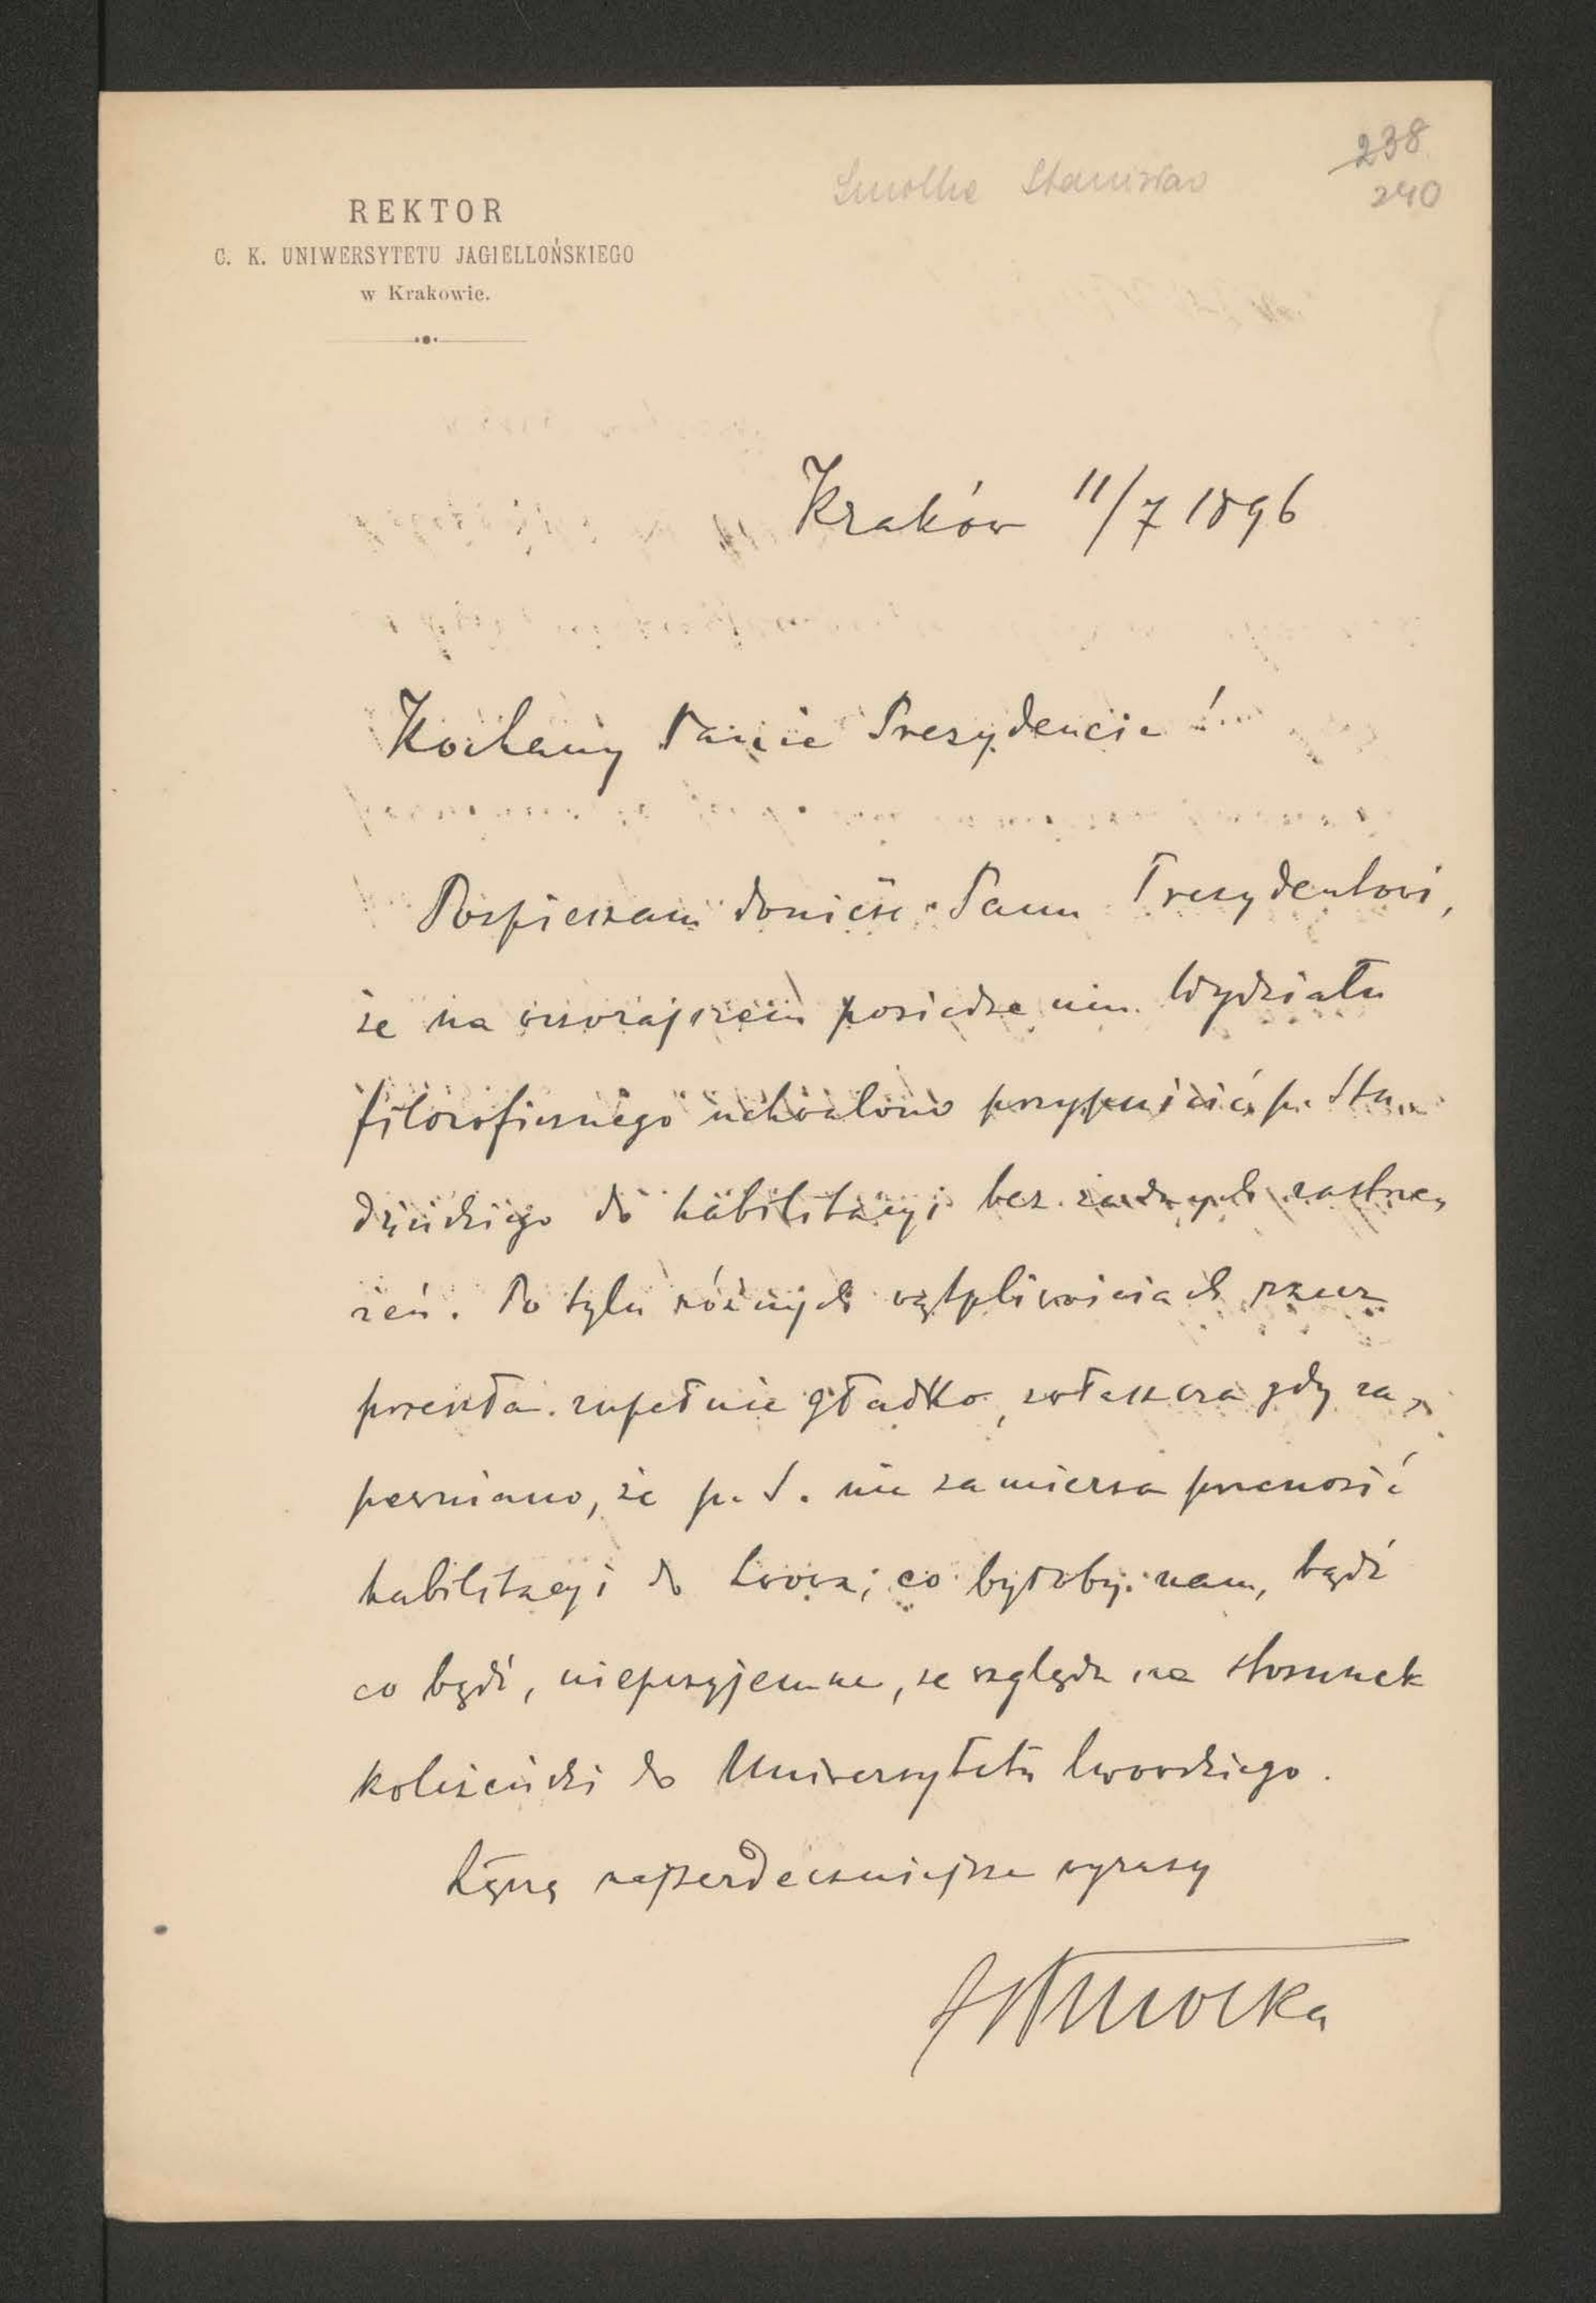 238
240
Smolka Stanisław
REKTOR
C. K. UNIWERSYTETU JAGIELLOŃSKIEGO
w Krakowie.
Kraków 11/7 1896
Kochany Panie Prezydencie!
Pospieszam donieść Panu Prezydentowi,
że na wczorajszem posiedzeniu Wydziału
filozoficznego uchwalono przypuścić p. Stu-
dzińskiego do habilitacyi bez żadnych zastrze-
żeń. Po tylu różnych wątpliwościach rzecz
przeszła zupełnie gładko, zwłaszcza gdy za-
pewniano, że p. S. nie zamierza przenosić
habilitacyi do Lwowa; co byłoby nam, bądź
co bądź, nieprzyjemne, ze względu na stosunek
koleżeński do Uniwersytetu lwowskiego.
Łączę najserdeczniejsze wyrazy
StSmolka